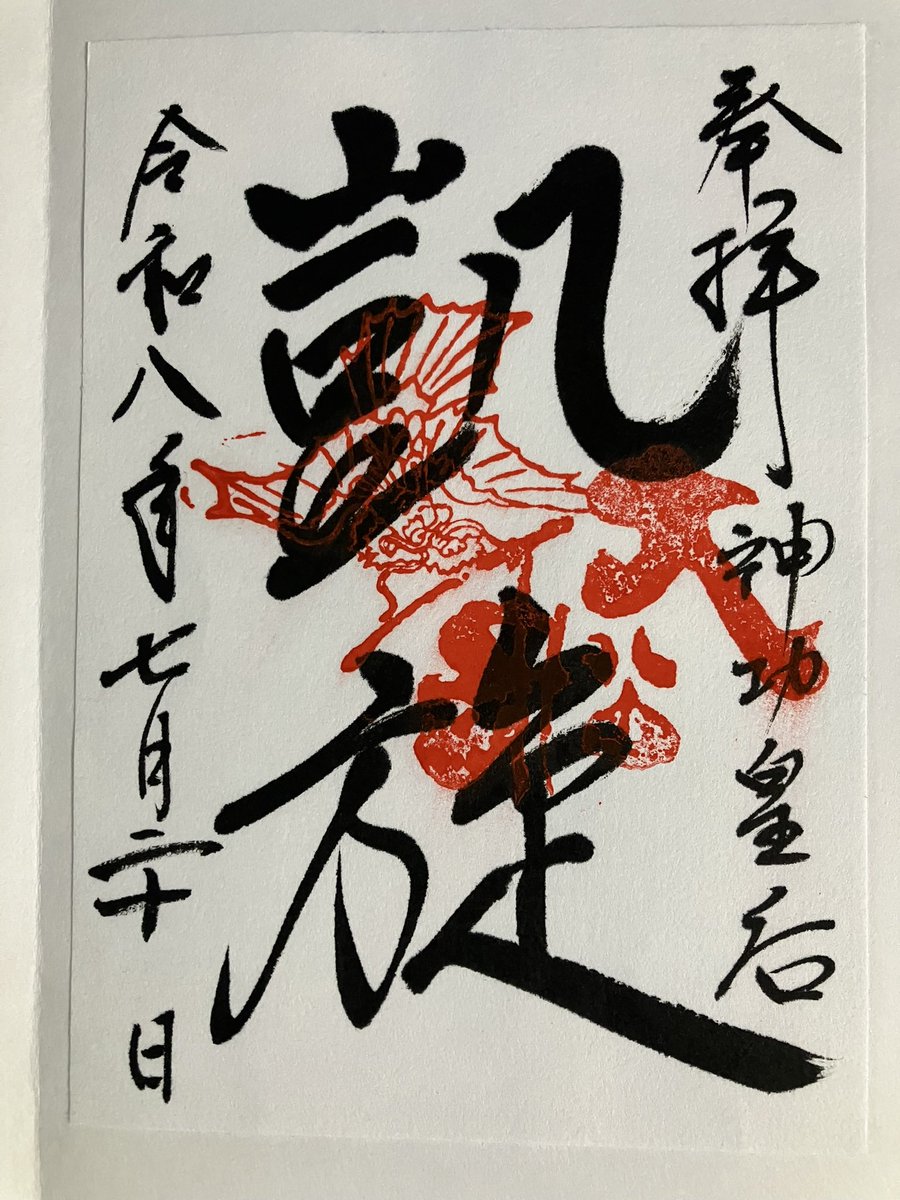 奉拝 神功皇后
凱旋
令和八年七月二十日